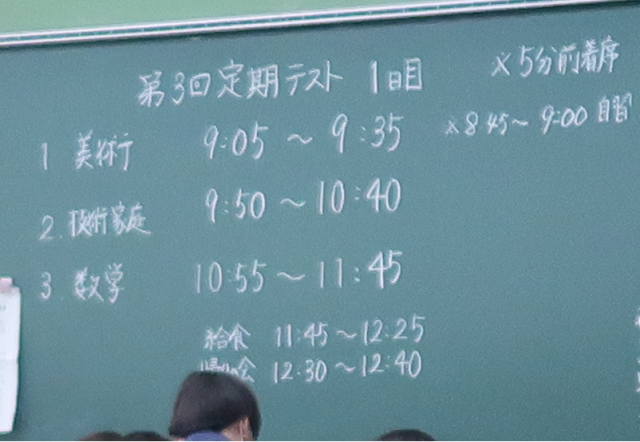 第3回定期テスト 1日目
※5分前着席
※8:45～9:00 自習
1 美術 9:05～9:35
2. 技術家庭 9:50～10:40
3. 数学 10:55～11:45
給食 11:45～12:25
帰りの会 12:30～12:40